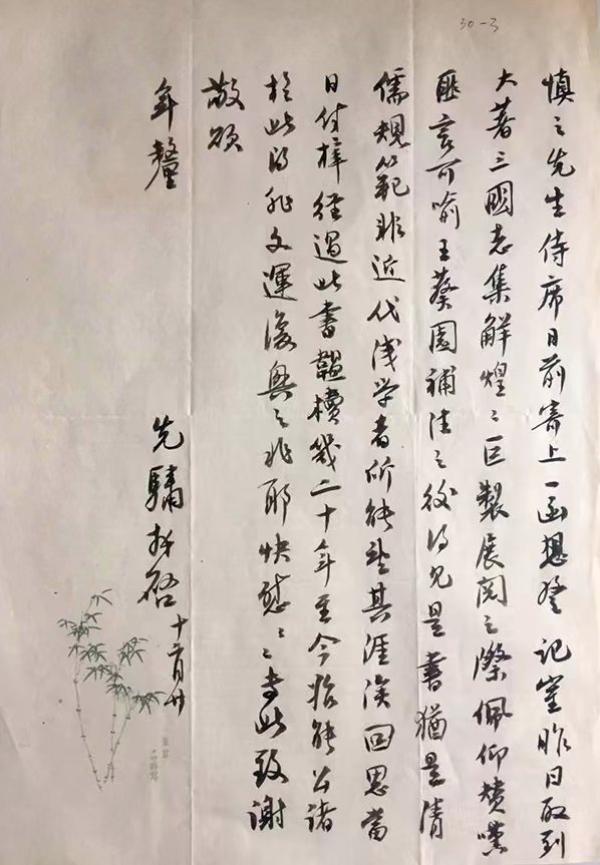 30-3
慎之先生侍席日前寄上一函想登 記室昨日取到
大著三國志集解煌〻巨製展閱之際佩仰贊嘆
匪言可喻王葵園補注之後得見是書猶是清
儒規範非近代淺学者所能望其涯涘回思當
日付梓經過此書韞櫝幾二十年至今始能公諸
於此得非文運復興之兆耶快慰〻〻專此致謝
敬頌
年釐
先驌拜啓 十二月廿